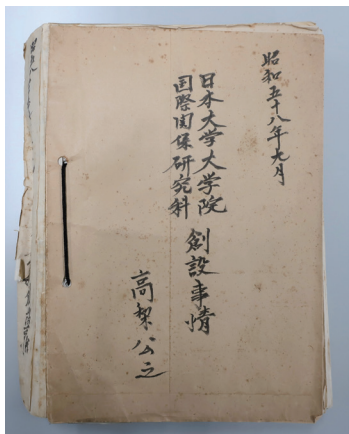 昭和五十八年九月
日本大学大学院
国際関係研究科
創設事情
高梨公之